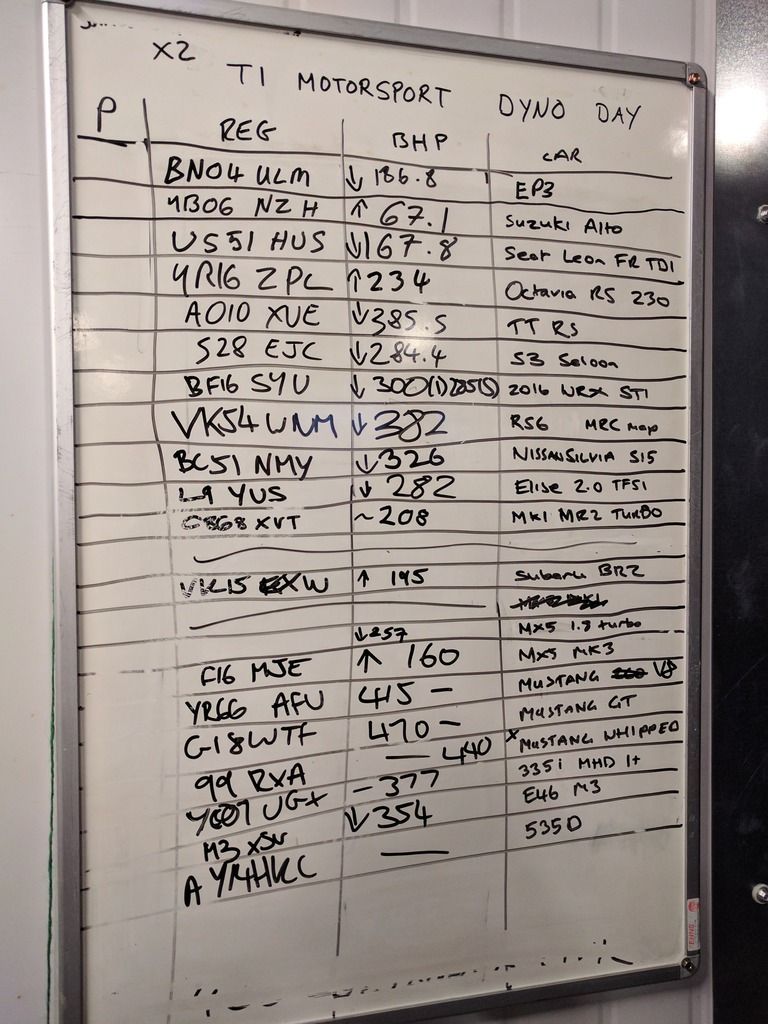 X2
T1 MOTORSPORT DYNO DAY
P REG BHP CAR
BN04 ULM ↓ 186.8 EP3
YB06 NZH ↑ 67.1 Suzuki Alto
US51 HUS ↓167.8 Seat Leon FR TDI
YR16 ZPL ↑234 Octavia RS 230
AO10 XUE ↓385.5 TT RS
S28 EJC ↓284.4 S3 Saloon
BF16 SYU ↓ 300(1) 285(S) 2016 WRX STI
VK54 WNM ↓ 382 RS6 MRC map
BC51 NMY ↓326 NISSAN SILVIA S15
L9 YUS ↓ 282 Elise 2.0 TFSI
XVT ~208 MK1 MR2 TURBO
VK15 EXW ↑ 195 Subaru BRZ
↓257 MX5 1.8 turbo
F16 MJE ↑ 160 MX5 MK3
YR66 AFU 415 – MUSTANG V8
G18WTF 470 – MUSTANG GT
99 RXA — 440 x MUSTANG WHIPPED
UGX – 377 335i MHD 1+
M3 XSV ↓354 E46 M3
— 535D